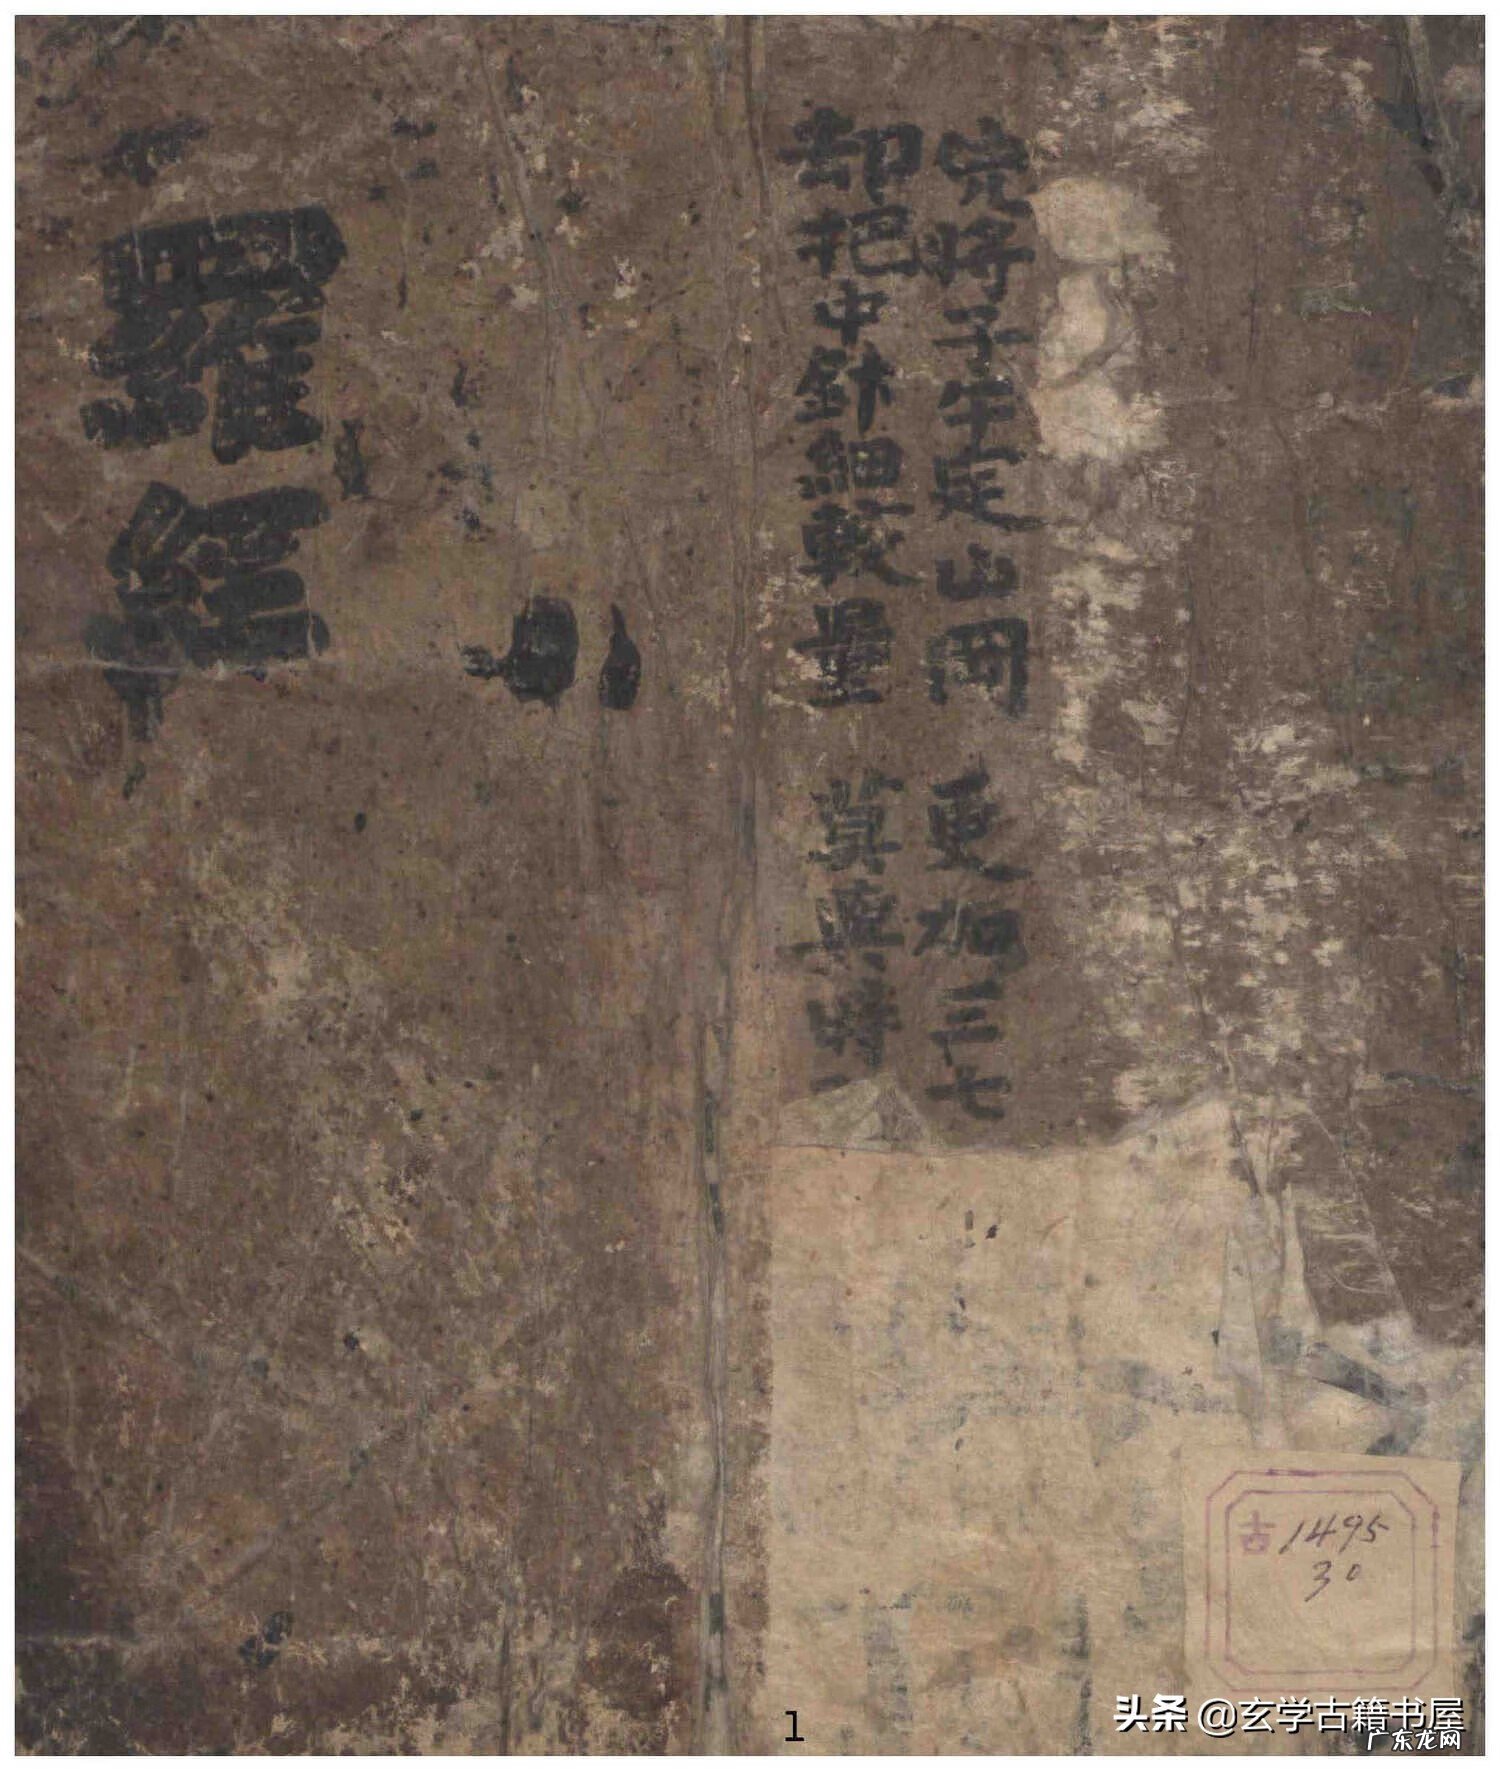 先将子午定山岡 更加三七
却把中針細較量 莫與時
羅經
古 1495
30
1
头条 @玄学古籍书屋
广东龙网